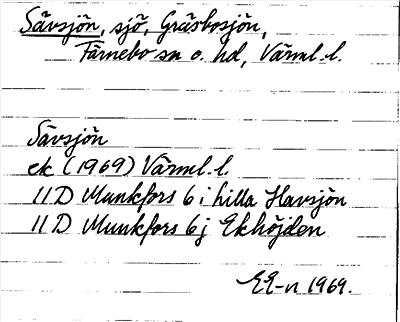 Sävsjön, sjö, Gräsbosjön,
Färnebo sn o. hd, Värml. l.
Sävsjön
ek (1969) Värml. l.
11 D Munkfors 6 i hilla Havsjön
11 D Munkfors 6 j Ekhöjden
EE-n 1969.